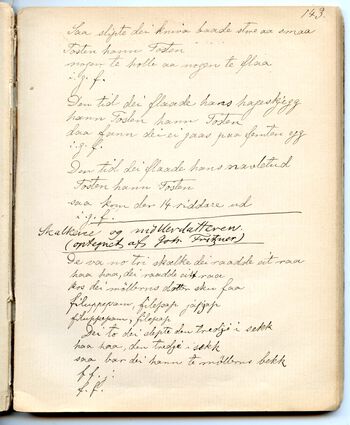 143.
Saa slipte dei kniva baade store aa smaa
Tosten hann Tosten
nogen te holle aa nogen te flaa
i. g. f.
Den tid dei flaade hans hageskjegg
hann Tosten hann Tosten
daa fann dei ei gaas paa femten egg
i. g. f.
Den tid dei flaade hans navletud
Tosten hann Tosten
saa kom der 14 riddare ud
i. g. f.
Skalkene og møllerdatteren.
(optegnet af Joh. Fritzner)
De va no tri skælke dei raadte eit raa
haa haa, dei raadte eit raa
kos dei møllerns dotter sku faa
filuppepam, filepap
filuppepam, filepap
Dei to dei slepte den tredje i sekk
haa haa, den tredje i sekk
saa bar dei hann te møllerns bekk
f. f.
f. f.